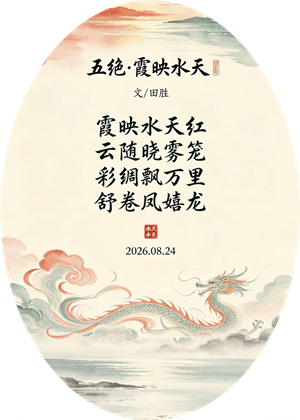 五绝·霞映水天
文/田胜
霞映水天红
云随晓雾笼
彩绸飘万里
舒卷凤嬉龙
2026.08.24